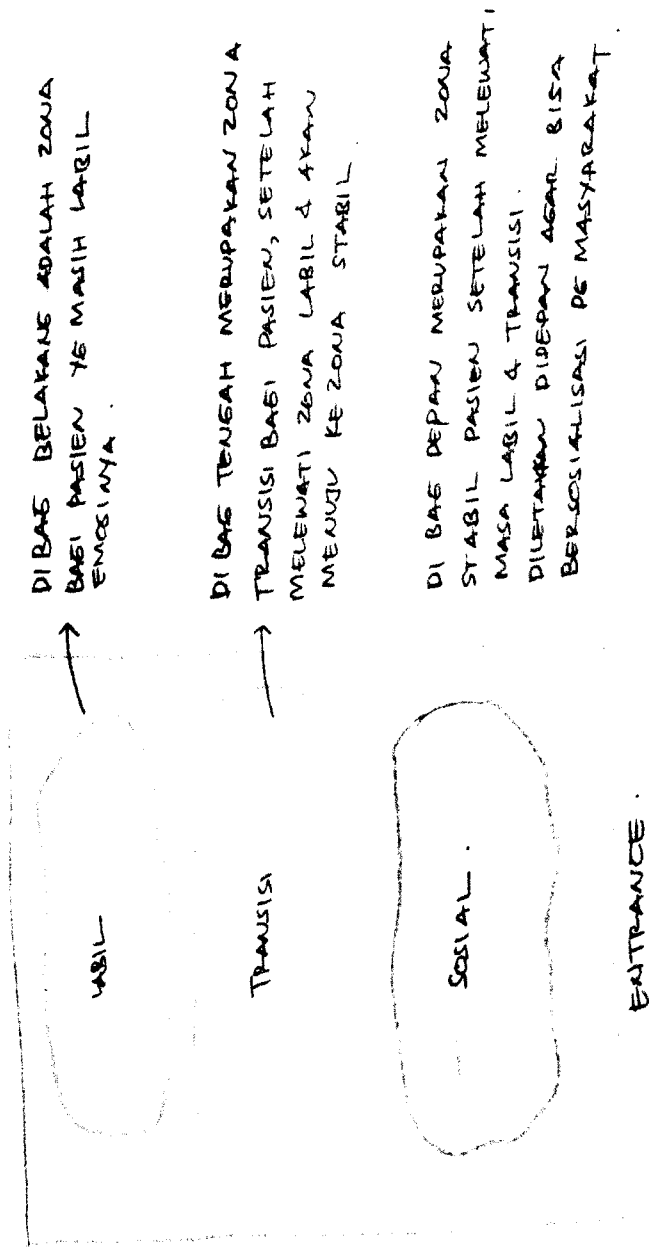 LABIL
DI BAG BELAKANG ADALAH ZONA
BAGI PASIEN YG MASIH LABIL
EMOSINYA.
TRANSISI
DI BAG TENGAH MERUPAKAN ZONA
TRANSISI BAGI PASIEN, SETELAH
MELEWATI ZONA LABIL & AKAN
MENUJU KE ZONA STABIL.
SOSIAL.
DI BAG DEPAN MERUPAKAN ZONA
STABIL PASIEN SETELAH MELEWATI
MASA LABIL & TRANSISI.
DILETAKAN DIDEPAN AGAR BISA
BERSOSIALISASI DG MASYARAKAT.
ENTRANCE.